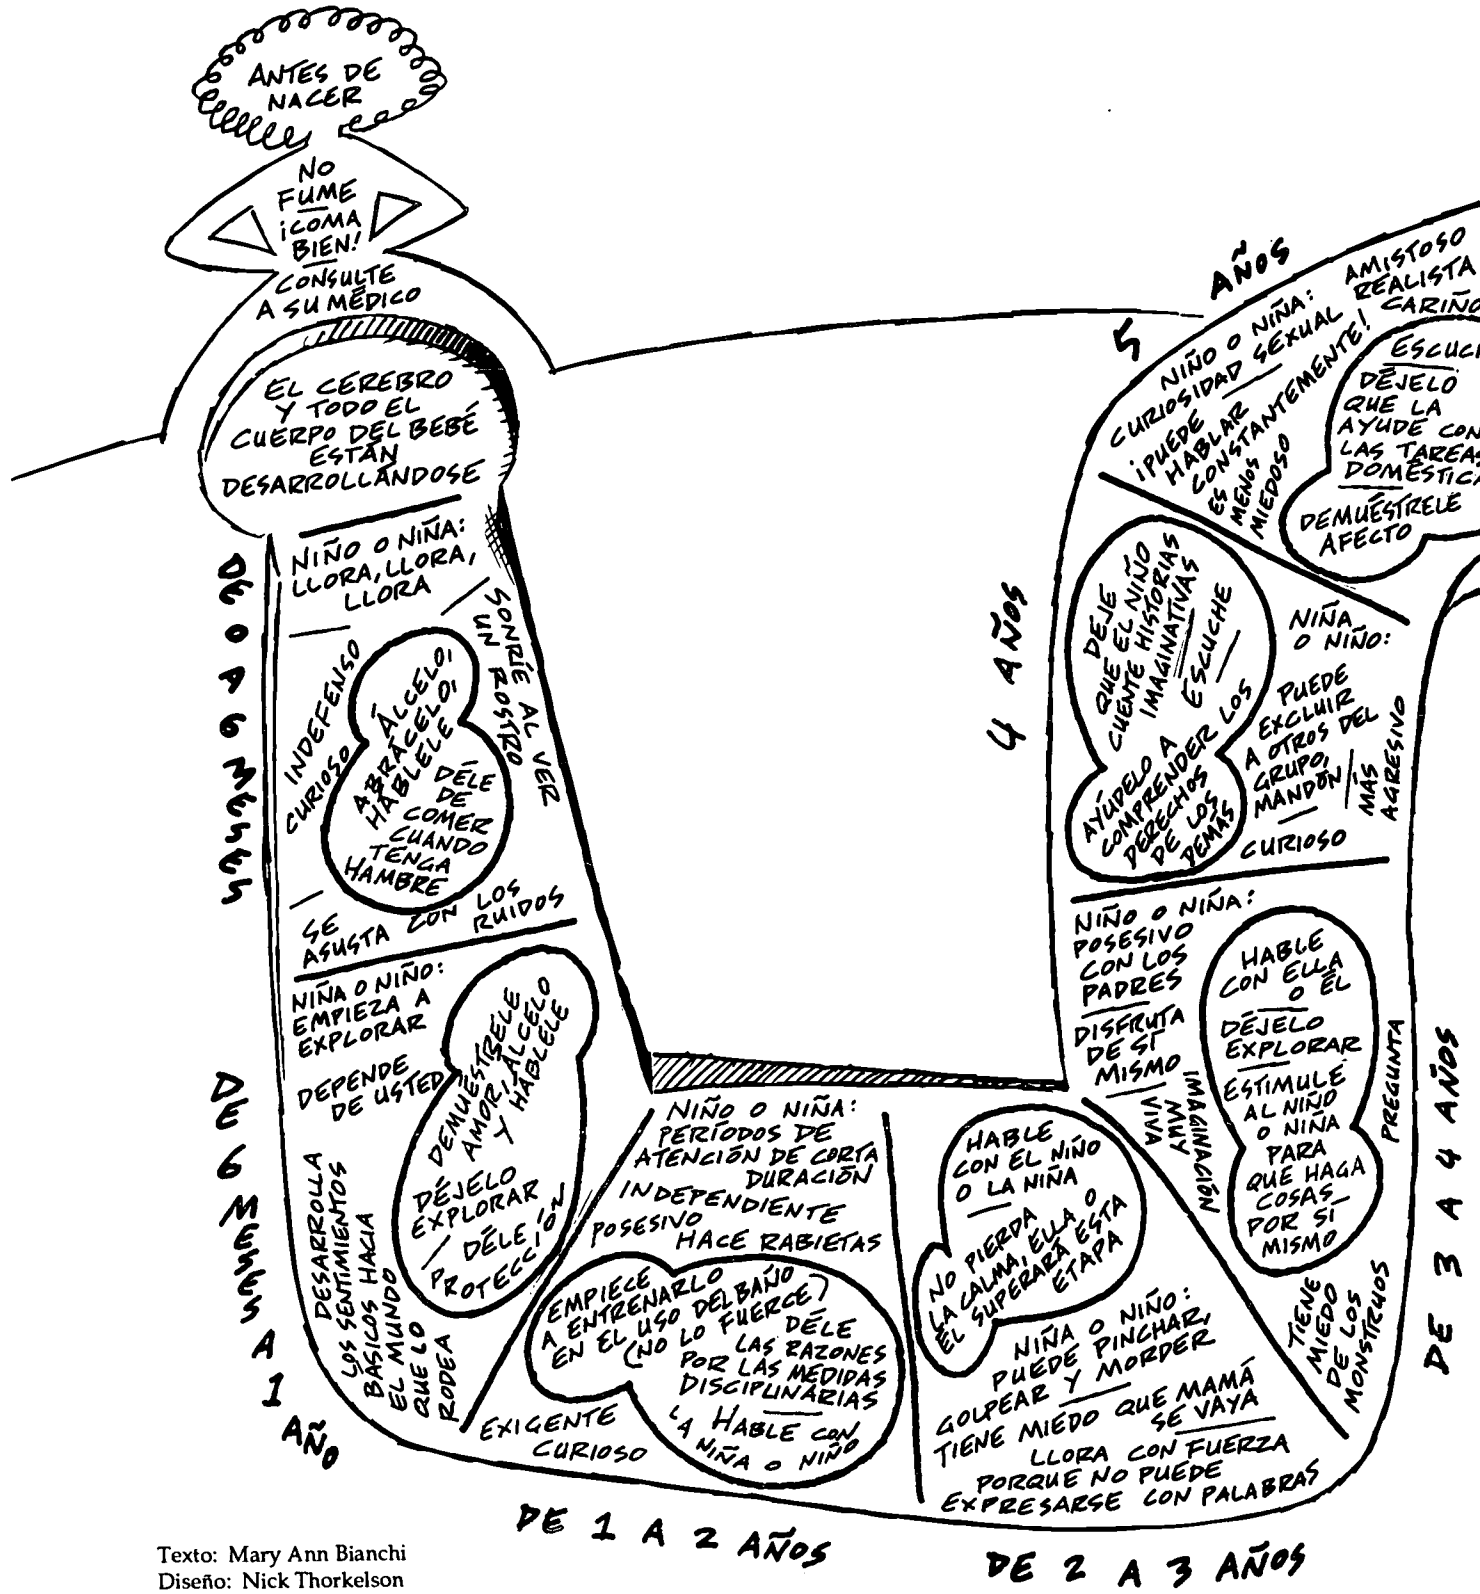 ANTES DE
NACER
NO
FUME
¡COMA
BIEN!
CONSULTE
A SU MÉDICO
EL CEREBRO
Y TODO EL
CUERPO DEL BEBÉ
ESTÁN
DESARROLLÁNDOSE
DE 0 A 6 MESES
NIÑO O NIÑA:
LLORA, LLORA,
LLORA
SONRÍE AL VER
UN ROSTRO
INDEFENSO
CURIOSO
ÁLCELO,
ABRÁCELO,
HÁBLELE
DÉLE
DE
COMER
CUANDO
TENGA
HAMBRE
SE
ASUSTA CON LOS
RUIDOS
DE 6 MESES A 1 AÑO
NIÑA O NIÑO:
EMPIEZA A
EXPLORAR
DEPENDE
DE USTED
DEMUÉSTRELE
AMOR, ÁLCELO
Y HÁBLELE
DÉJELO
EXPLORAR
DÉLE
PROTECCIÓN
DESARROLLA
LOS SENTIMIENTOS
BÁSICOS HACIA
EL MUNDO
QUE LO
RODEA
DE 1 A 2 AÑOS
NIÑO O NIÑA:
PERÍODOS DE
ATENCIÓN DE CORTA
DURACIÓN
INDEPENDIENTE
POSESIVO
HACE RABIETAS
EMPIECE
A ENTRENARLO
EN EL USO DEL BAÑO
(NO LO FUERCE)
DÉLE
LAS RAZONES
POR LAS MEDIDAS
DISCIPLINARIAS
HABLE CON
LA NIÑA O NIÑO
EXIGENTE
CURIOSO
DE 2 A 3 AÑOS
HABLE
CON EL NIÑO
O LA NIÑA
NO PIERDA
LA CALMA, ELLA O
EL SUPERARÁ ESTA
ETAPA
NIÑA O NIÑO:
PUEDE PINCHAR,
GOLPEAR Y MORDER
TIENE MIEDO QUE MAMÁ
SE VAYA
LLORA CON FUERZA
PORQUE NO PUEDE
EXPRESARSE CON PALABRAS
DE 3 A 4 AÑOS
NIÑO O NIÑA:
POSESIVO
CON LOS
PADRES
DISFRUTA
DE SÍ
MISMO
IMAGINACIÓN
MUY
VIVA
HABLE
CON ELLA
O ÉL
DÉJELO
EXPLORAR
ESTIMULE
AL NIÑO
O NIÑA
PARA
QUE HAGA
COSAS
POR SÍ
MISMO
PREGUNTA
TIENE
MIEDO
DE LOS
MONSTRUOS
4 AÑOS
DEJE
QUE EL NIÑO
CUENTE HISTORIAS
IMAGINATIVAS
ESCUCHE
AYÚDELO A
COMPRENDER LOS
DERECHOS
DE LOS
DEMÁS
NIÑA
O NIÑO:
PUEDE
EXCLUIR
A OTROS DEL
GRUPO,
MANDÓN
MÁS
AGRESIVO
CURIOSO
5 AÑOS
NIÑO O NIÑA:
CURIOSIDAD SEXUAL
¡PUEDE
HABLAR
CONSTANTEMENTE!
ES
MENOS
MIEDOSO
AMISTOSO
REALISTA
CARIÑO
ESCUC
DÉJELO
QUE LA
AYUDE CON
LAS TAREAS
DOMÉSTICA
DEMUÉSTRELE
AFECTO
Texto: Mary Ann Bianchi
Diseño: Nick Thorkelson